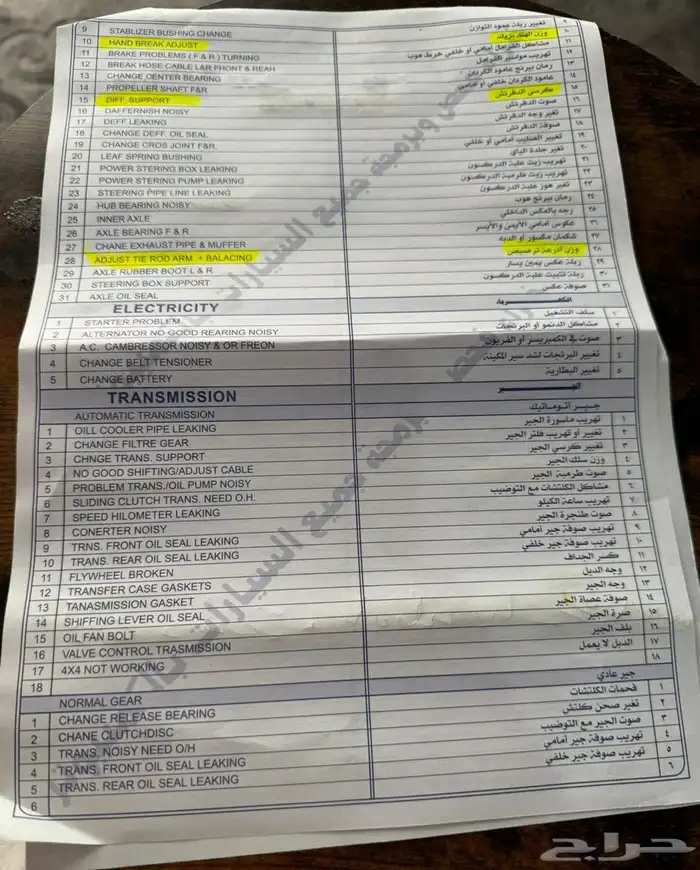 9 STABLIZER BUSHING CHANGE تغيير ربلة عمود التوازن ٩
10 HAND BREAK ADJUST وزن الهند بريك ١٠
11 BREAK PROBLEMS ( F & R ) TURNING مشاكل الفرامل أمامي أو خلفي خرط هوب ١١
12 BREAK HOSE CABLE L&R FHONT & REAH تهريب مواسير الفرامل ١٢
13 CHANGE CENTER BEARING رمان بيرنج عامود الكردان ١٣
14 PROPELLER SHAFT F&R عامود الكردان خلفي أو أمامي ١٤
15 DIFF. SUPPORT كرسي الدفرنش ١٥
16 DAFFERNISH NOISY صوت الدفرنش ١٦
17 DEFF LEAKING تغير وجه الدفرنش ١٧
18 CHANGE DEFF. OIL SEAL صوفة الدفرنش ١٨
19 CHANGE CROS JOINT F&R. تغيير الصليب أمامي أو خلفي ١٩
20 LEAF SPRING BUSHING تغير جلدة الياي ٢٠
21 POWER STERING BOX LEAKING تهريب زيت علبة الدركسون ٢١
22 POWER STERING PUMP LEAKING تهريب زيت طرمبة الدركسون ٢٢
23 STEERING PIPE LINE LEAKING تغير هوز علبة الدركسون ٢٣
24 HUB BEARING NOISY رمان بيرنج هوب ٢٤
25 INNER AXLE رجه بالعكس الداخلي ٢٥
26 AXLE BEARING F & R عكوس أمامي الأيمن والأيسر ٢٦
27 CHANE EXHAUST PIPE & MUFFER شكمان مكسور أو الدبه ٢٧
28 ADJUST TIE ROD ARM. + BALACING وزن أذرعة ترصيص ٢٨
29 AXLE RUBBER BOOT L & R ربلة عكس يمين يسار ٢٩
30 STEERING BOX SUPPORT ربلة تثبيت علبة الدركسون ٣٠
31 AXLE OIL SEAL صوفة عكس ٣١
ELECTRICITY الكهرباء
1 STARTER PROBLEM سلف التشغيل ١
2 ALTERNATOR NO GOOD REARING NOISY مشاكل الدنمو أو البرنجات ٢
3 A.C. CAMBRESSOR NOISY & OR FREON صوت في الكمبريسر أو الفريون ٣
4 CHANGE BELT TENSIONER تغيير البرنجات لشد سير المكينة ٤
5 CHANGE BATTERY تغيير البطارية ٥
TRANSMISSION الجير
AUTOMATIC TRANSMISSION جير أتوماتيك
1 OILL COOLER PIPE LEAKING تهريب ماسورة الجير ١
2 CHANGE FILTRE GEAR تغيير أو تهريب فلتر الجير ٢
3 CHNGE TRANS. SUPPORT تغيير كرسي الجير ٣
4 NO GOOD SHIFTING/ADJUST CABLE وزن سلك الجير ٤
5 PROBLEM TRANS./OIL PUMP NOISY صوت طرمبة الجير ٥
6 SLIDING CLUTCH TRANS. NEED O.H. مشاكل الكلتشات مع التوضيب ٦
7 SPEED HILOMETER LEAKING تهريب ساعة الكيلو ٧
8 CONERTER NOISY صوت طنجرة الجير ٨
9 TRNS. FRONT OIL SEAL LEAKING تهريب صوفة جير أمامي ٩
10 TRANS. REAR OIL SEAL LEAKING تهريب صوفة جير خلفي ١٠
11 FLYWHEEL BROKEN كسر الجداف ١١
12 TRANSFER CASE GASKETS وجه الدبل ١٢
13 TANASMISSION GASKET وجه الجير ١٣
14 SHIFFING LEVER OIL SEAL صوفة عصاة الجير ١٤
15 OIL FAN BOLT صرة الجير ١٥
16 VALVE CONTROL TRASMISSION بلف الجير ١٦
17 4X4 NOT WORKING الدبل لا يعمل ١٧
18 ١٨
NORMAL GEAR جير عادي
1 CHANGE RELEASE BEARING فحمات الكلتشات ١
2 CHANE CLUTCHDISC تغير صحن كلتش ٢
3 TRANS. NOISY NEED O/H صوت الجير مع التوضيب ٣
4 TRANS. FRONT OIL SEAL LEAKING تهريب صوفة جير أمامي ٤
5 TRANS. REAR OIL SEAL LEAKING تهريب صوفة جير خلفي ٥
6 ٦
حراج